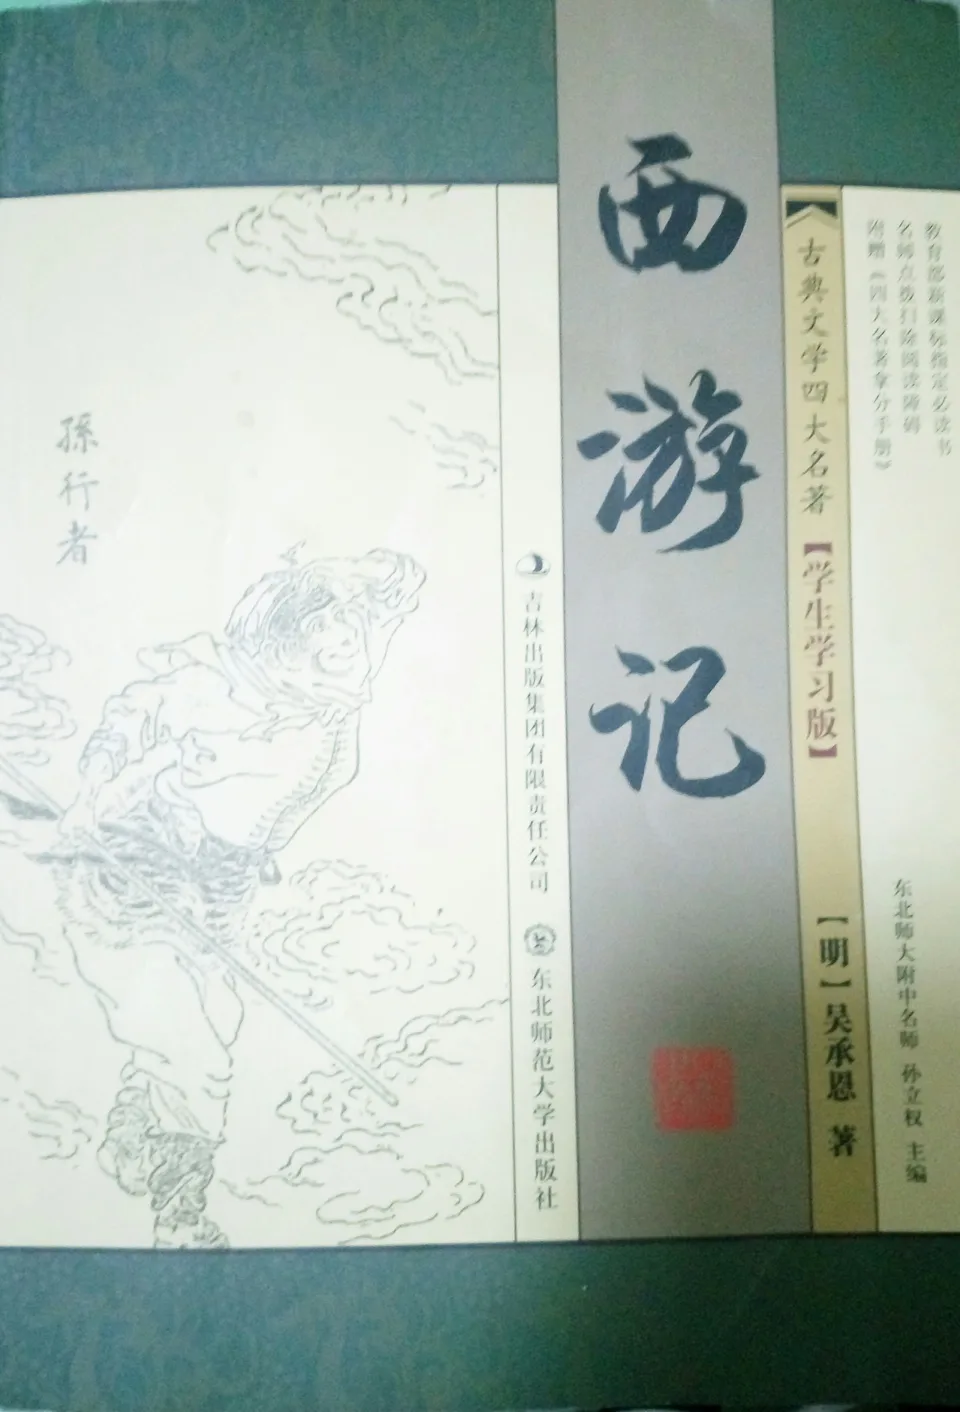 教育部新课标指定必读书
名师点拨扫除阅读障碍
附赠《四大名著拿分手册》
东北师大附中名师 孙立权 主编
古典文学四大名著
【学生学习版】
【明】吴承恩 著
西游记
吉林出版集团有限责任公司
东北师范大学出版社
孫行者